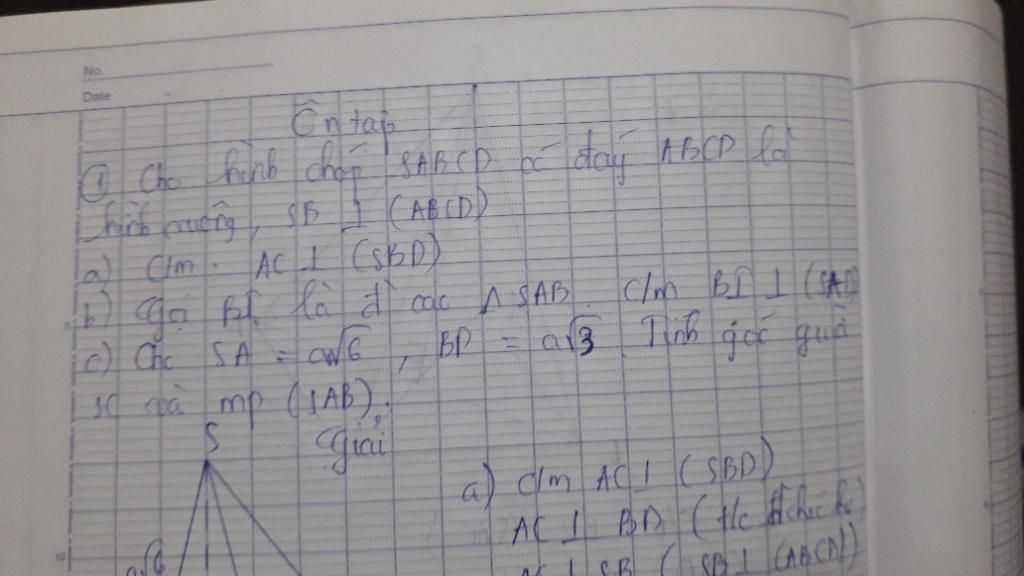 No.
Date
Ôn tập
① Cho hình chóp SABCD có đáy ABCD là
hình vuông, SB ⊥ (ABCD)
a) C/m. AC ⊥ (SBD)
b) Gọi BI là đ cao Δ SAB. C/m BI ⊥ (SAD
c) Cho SA = a√6, BD = a√3. Tính góc giữa
SC và mp (SAB).
S Giải
a) C/m AC ⊥ (SBD)
AC ⊥ BD (t/c
a√6 AC ⊥ SB (SB ⊥ (ABCD))
10